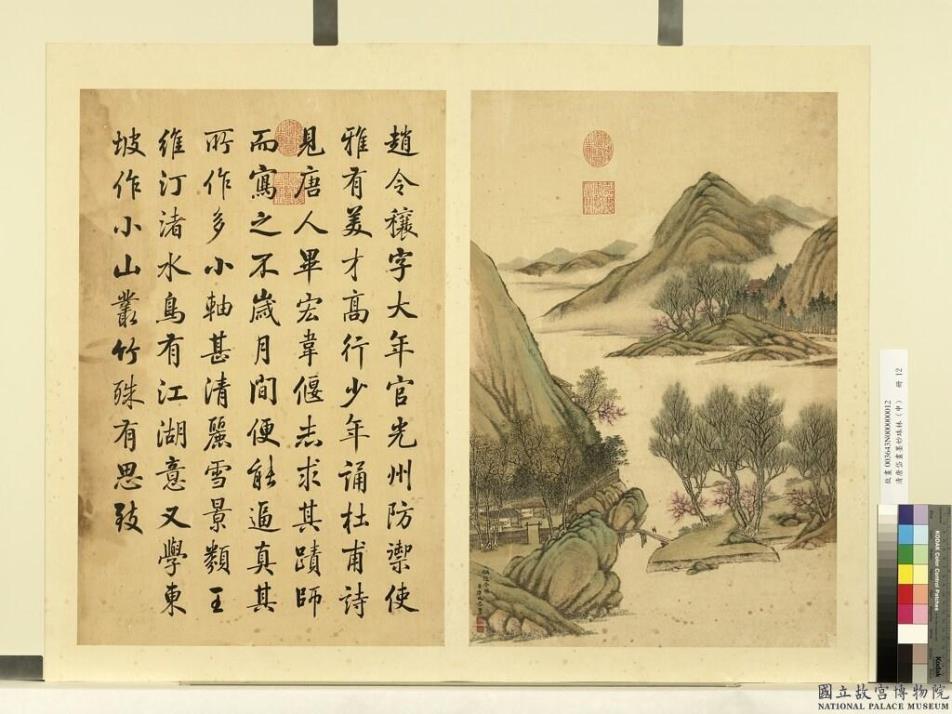 趙令穰字大年官光州防禦使
雅有美才高行少年誦杜甫詩
見唐人畢宏韋偃志求其蹟師
而寫之不歲月間便能逼真其
所作多小軸甚清麗雪景類王
維汀渚水鳥有江湖意又學東
坡作小山叢竹殊有思致
故畫 003643N000000012
清唐岱畫墨妙珠林（申） 冊 12
KODAK Color Control Patches
Kodak
國立故宮博物院
NATIONAL PALACE MUSEUM